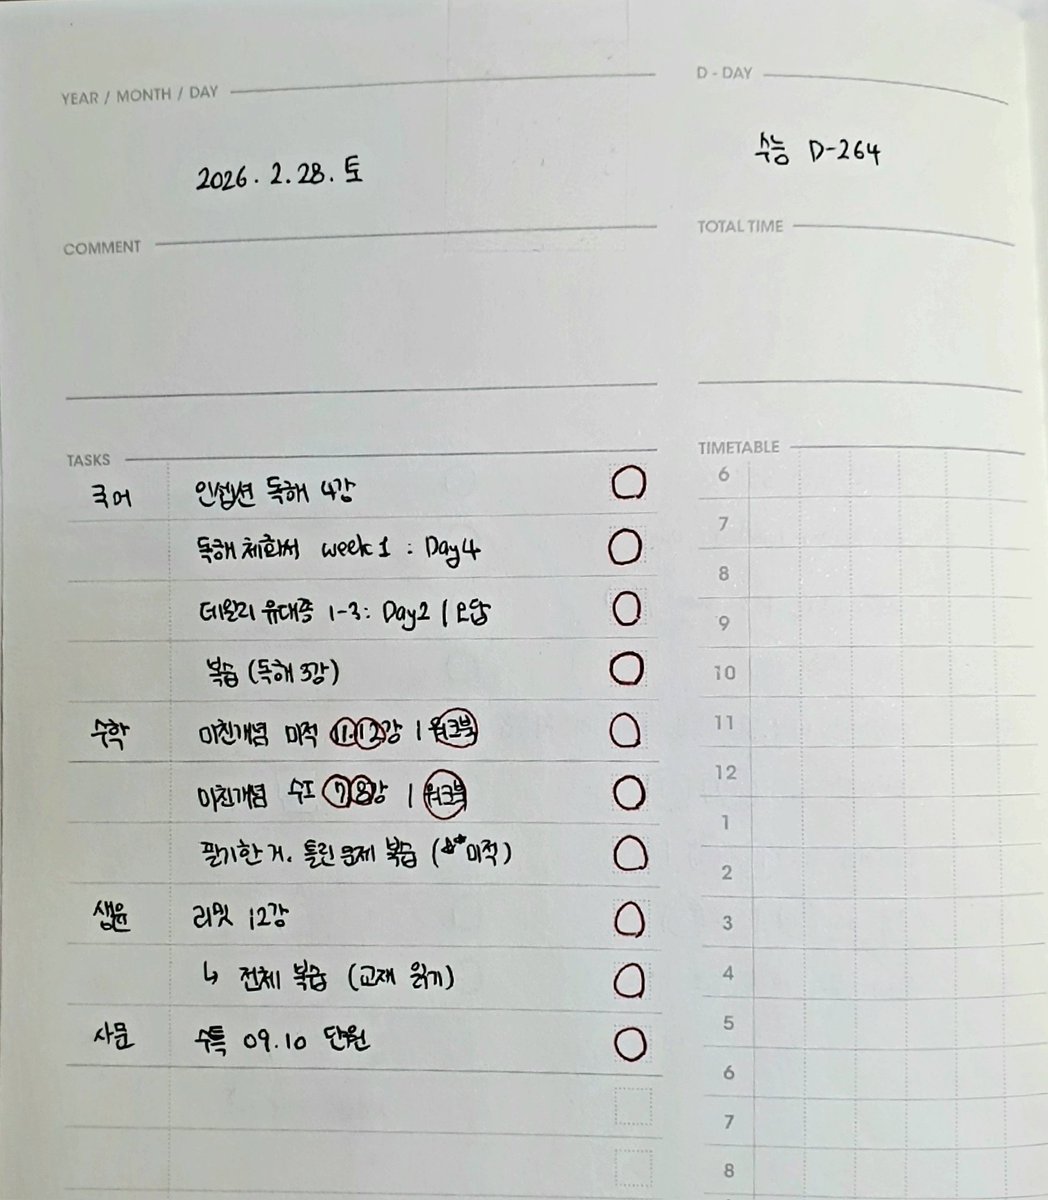 YEAR / MONTH / DAY
2026. 2. 28. 토
D - DAY
수능 D-264
COMMENT
TOTAL TIME
TASKS
국어 인셉션 독해 4강
독해 체화서 week 1 : Day4
데일리 유대종 1-3: Day2 / 오답
복습 (독해 3강)
수학 미친개념 미적 11.12강 / 워크북
미친개념 수I 7 8강 / 워크북
필기한 거. 틀린 문제 복습 (** 미적)
생윤 리밋 12강
↳ 전체 복습 (교재 읽기)
사문 수특 09.10 단원
TIMETABLE
6
7
8
9
10
11
12
1
2
3
4
5
6
7
8